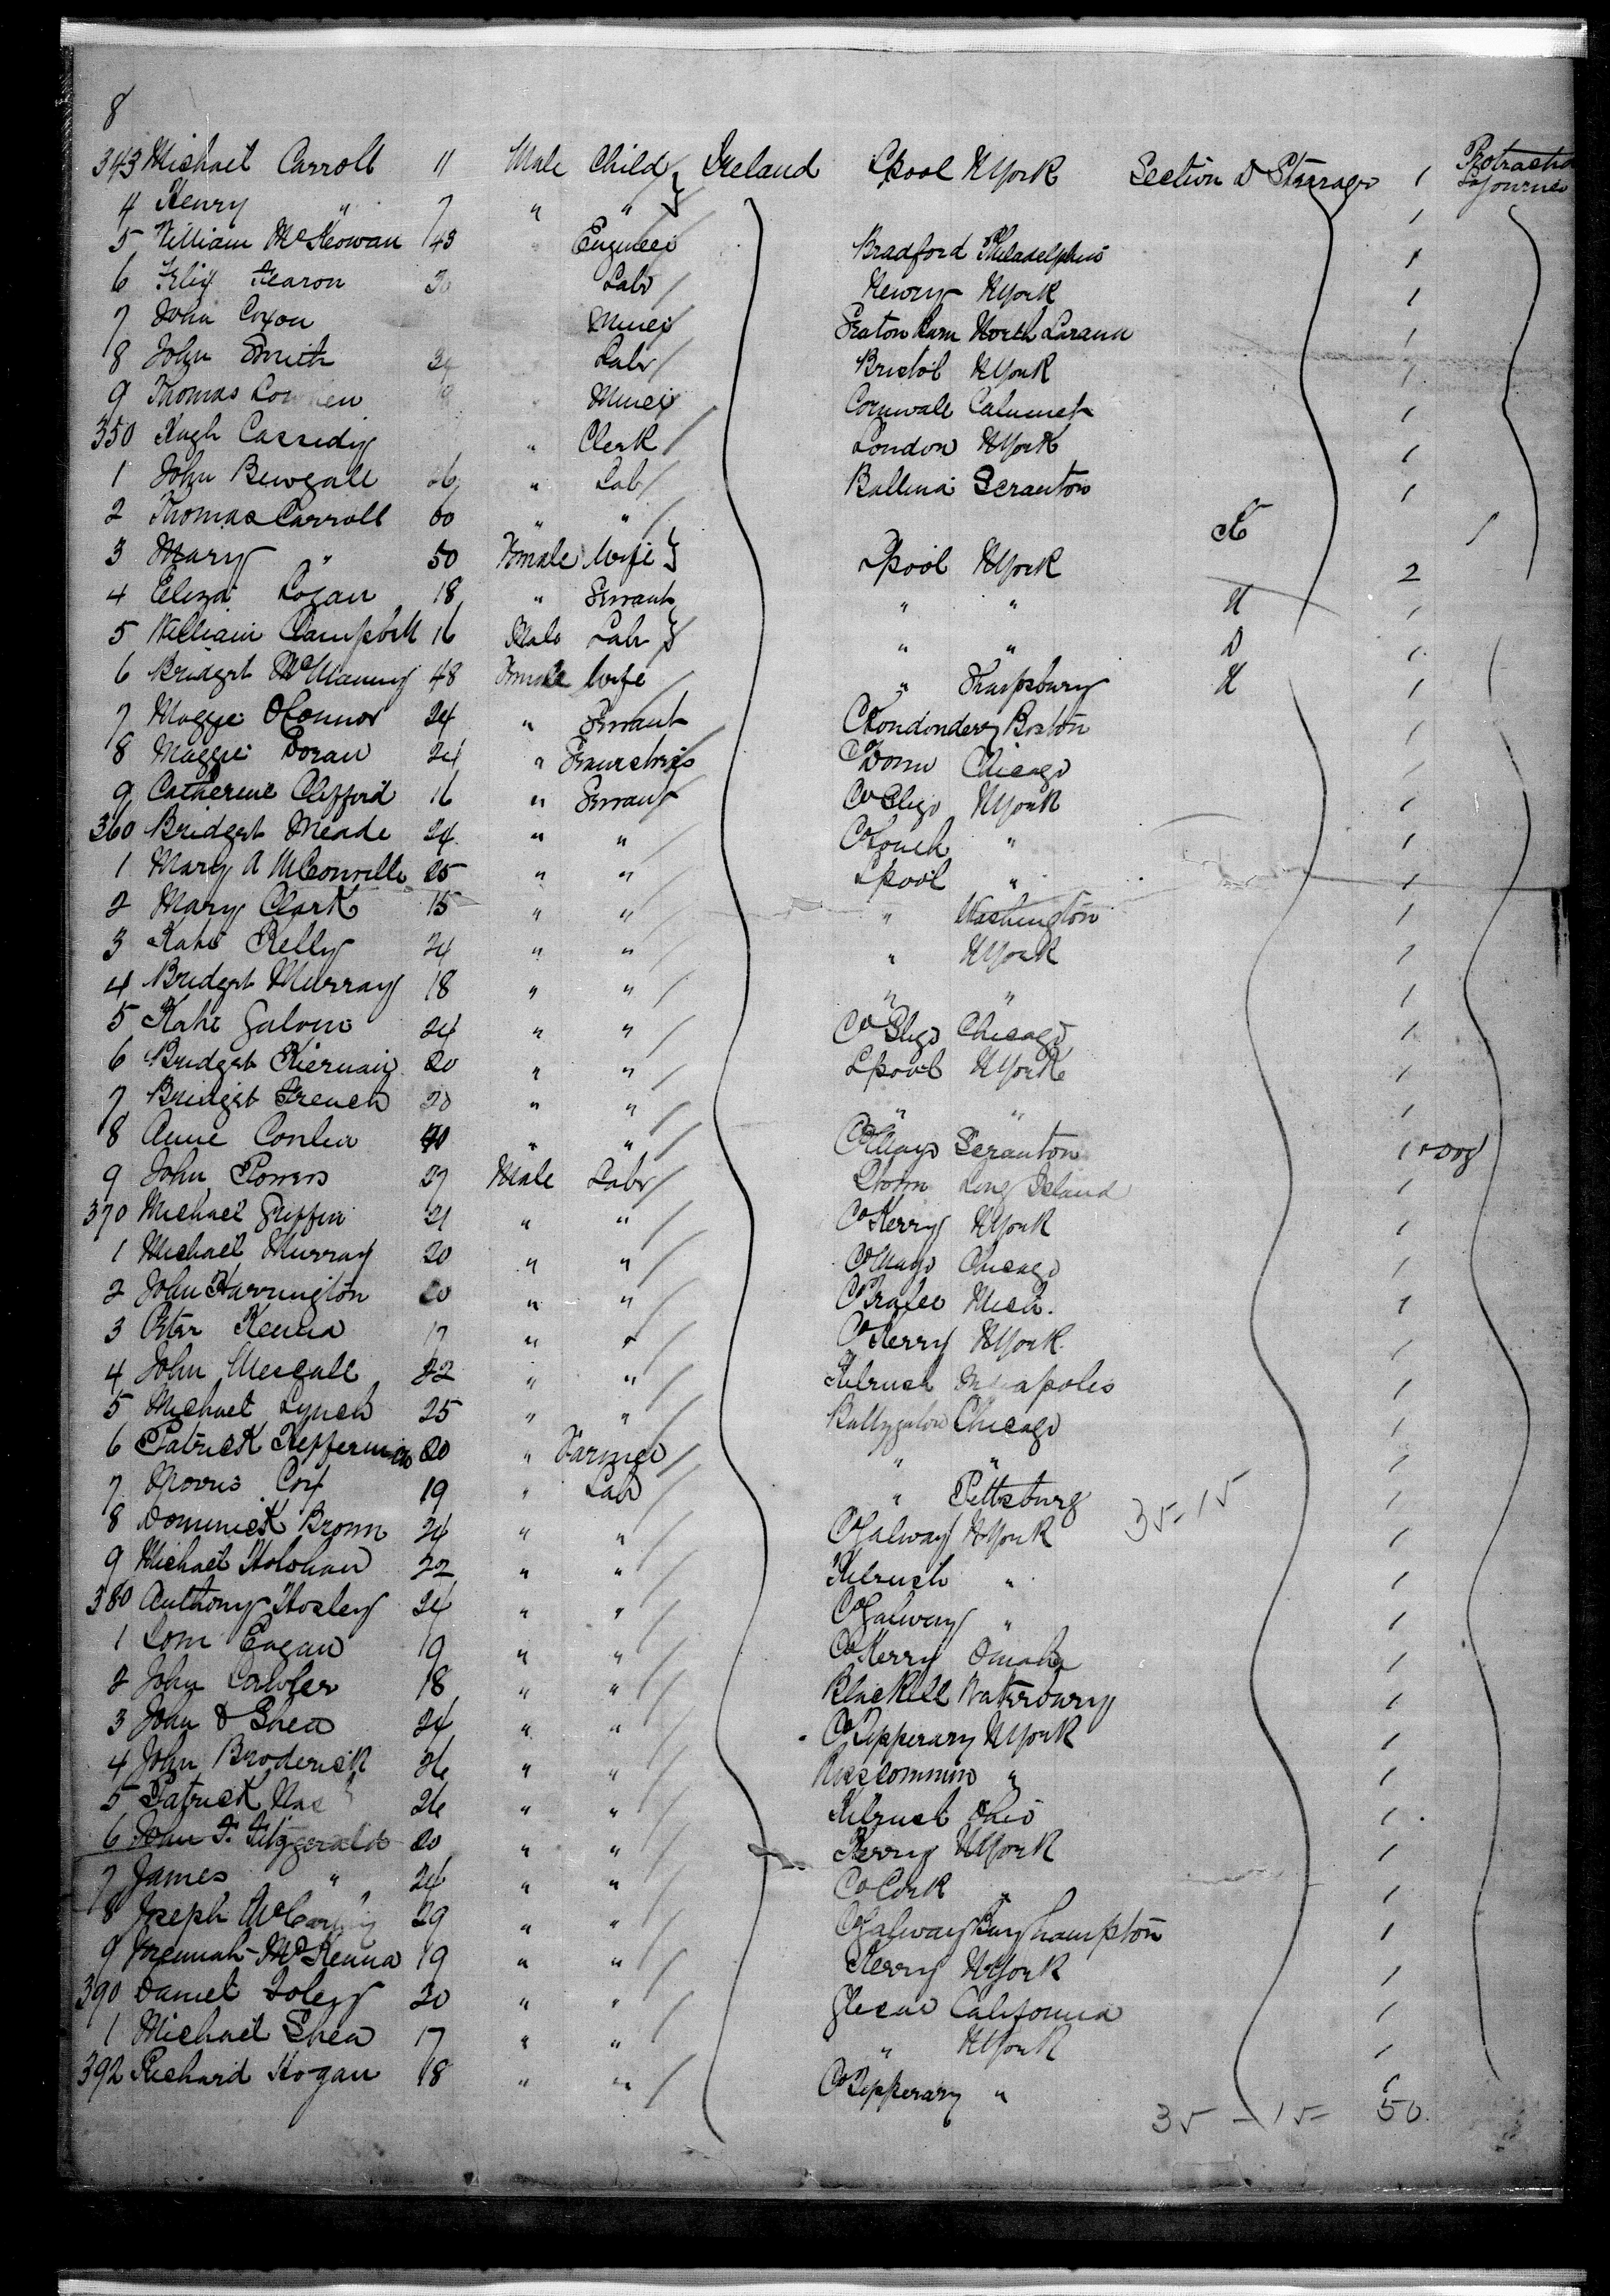 8
343 Michael Carroll 11 Male Child Ireland Lpool N York Section D Steerage 1 Protracted Sojourn
4 Henry " 7 " " 1
5 William McKeowan 43 Engineer Bradford Philadelphia 1
6 Felix Fearon 30 Labr Newry N York 1
7 John Coxon Miner 1
8 John Smith Labr Bristol N York 1
9 Thomas Miner Cornwall Calumet 1
350 Hugh Cassidy " Clerk London N York 1
1 John 26 " Lab Ballina Scranton 1
2 Thomas Carroll 60 " "
3 Mary " 50 Female Wife Lpool N York 2
4 Eliza Logan 18 " Servant " " 1
5 William Campbell 16 Male Labr " " D 1
6 Bridget 48 Female Wife " Sharpsbury 1
7 Maggie OConnor 24 " Servant Co Londondery Boston 1
8 Maggie Doran 24 " Seamstress Co Down Chicago 1
9 Catherine Clifford 16 " Servant Co Sligo N York 1
360 Bridget Meade 24 " " Co Louth " 1
1 Mary A McConville 25 " " Lpool " 1
2 Mary Clark 15 " " " Washington 1
3 Kate Kelly 24 " " " N York 1
4 Bridget Murray 18 " " " " 1
5 Kate Galvin 24 " " Co Sligo Chicago 1
6 Bridget Kiernan 20 " " Lpool N York 1
7 Bridget French 20 " " " " 1
8 Anne Conlin " " Co Mayo Scranton 1 + Dog
9 John Powers 27 Male Labr Long Island 1
370 Michael Griffin 21 " " Co Kerry N York 1
1 Michael Murray 20 " " Co Mayo Chicago 1
2 John Harrington 20 " " Co Tralee Mich. 1
3 Peter Kenna 17 " " Co Kerry N York 1
4 John 22 " " Kilrush 1
5 Michael Lynch 25 " " Chicago 1
6 Patrick Heffernan 20 " Farmer " " 1
7 Morris Cox 19 " Lab " Pittsburg 35-15 1
8 Dominick Brown 24 " " Co Galway N York 1
9 Michael Holohan 22 " " Kilrush " 1
380 Anthony Hosley 24 " " Co Galway " 1
1 Tom Eagan 19 " " Co Kerry Omaha 1
2 John Lawler 18 " " Waterbury 1
3 John O Shea 24 " " Co Tipperary N York 1
4 John Broderick 26 " " Roscommon " 1
5 Patrick 26 " " Kilrush Ohio 1
6 John F. Fitzgerald 20 " " Kerry N York 1
7 James " 24 " " Co Cork " 1
8 Joseph McCarthy 29 " " Co Galway Binghampton 1
9 Jeremiah McKenna 19 " " Kerry N York 1
390 Daniel Foley 20 " " California 1
1 Michael Shea 17 " " " N York 1
392 Richard Hogan 18 " " Co Tipperary " 1
35 - 15 50